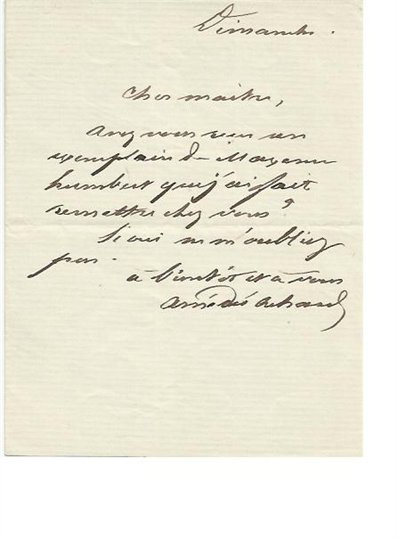 Dimanche.
Cher maître,
avez vous reçu un
exemplaire de Maxence
humbert que j'ai fait
remettre chez vous ?
Si oui ne m'oubliez
pas.
à bientôt et à vous
Amédée Achard